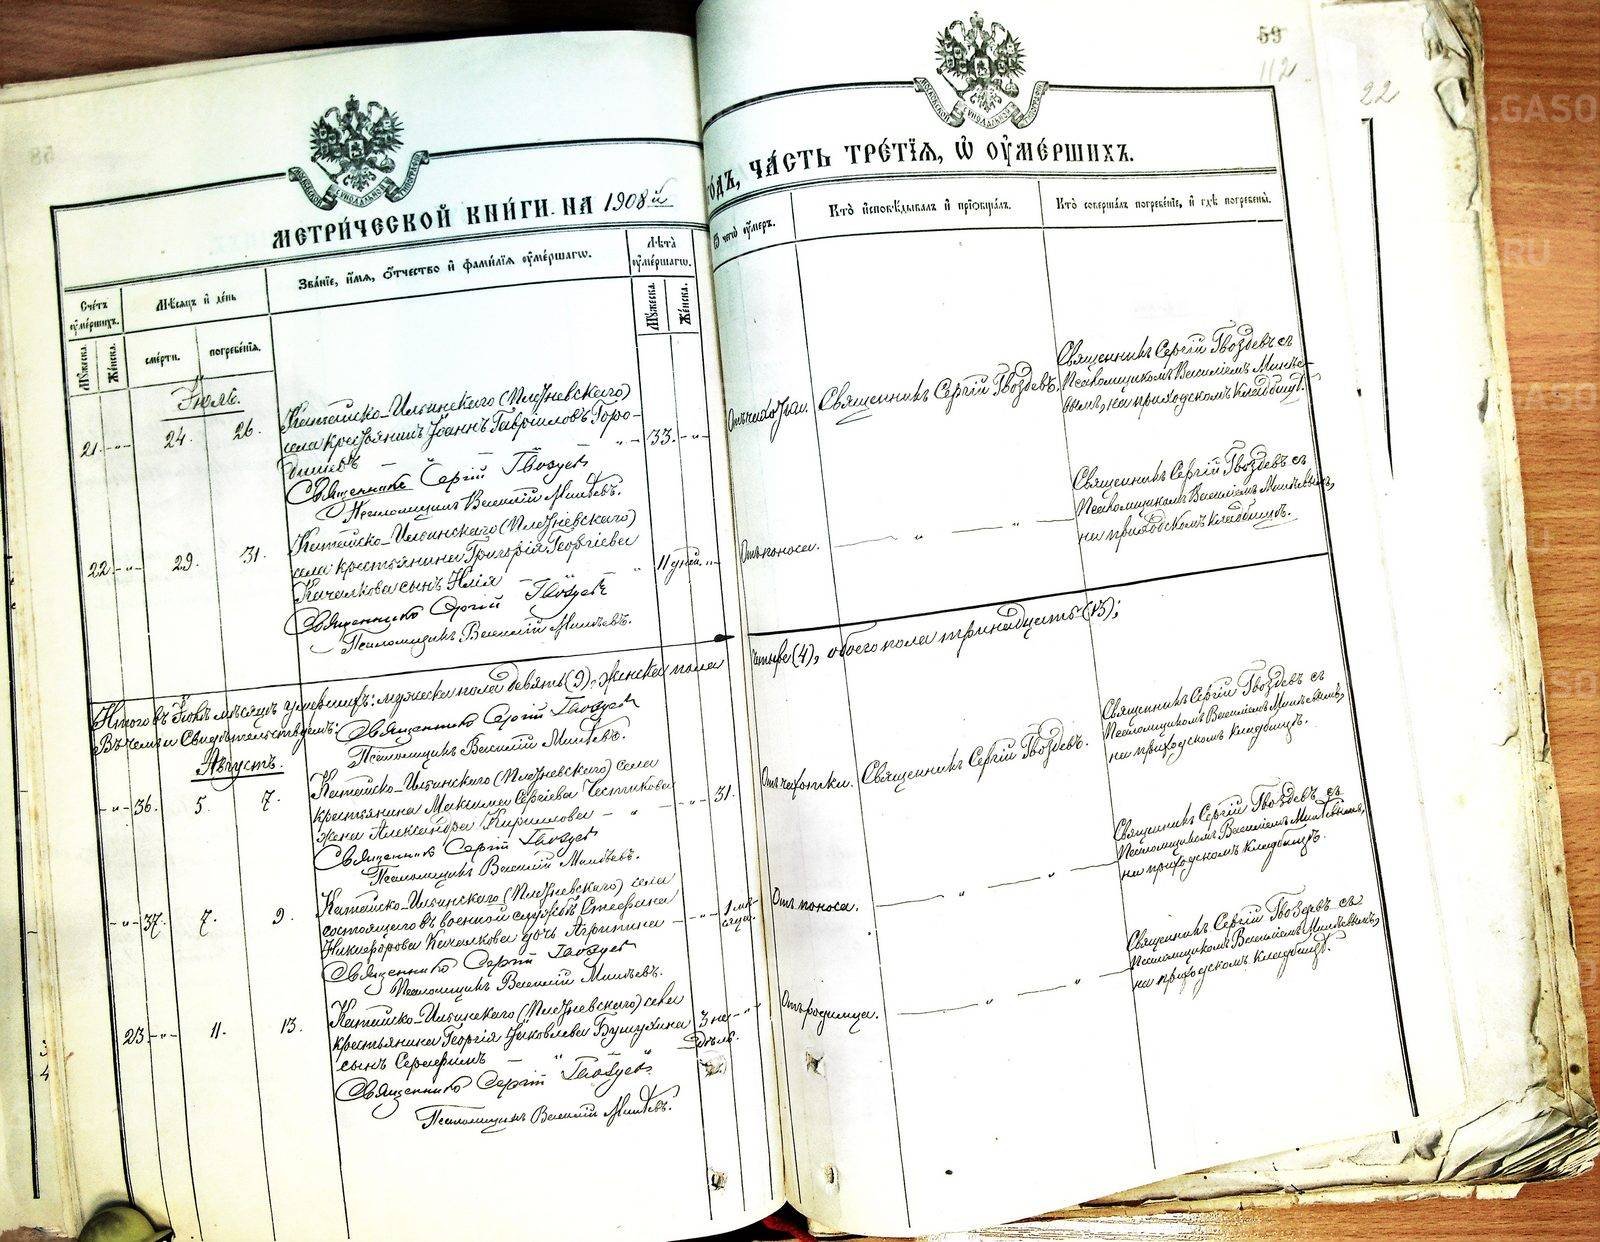 59
112
22
МЕТРИ́ЧЕСКОЙ КНИ́ГИ НА 1908й
ГОДЪ, ЧА́СТЬ ТРЕ́ТІѦ, Ѡ ОУМЕ́РШИХЪ.
Сче́тъ оуме́ршихъ.
Мѣсяцъ и де́нь
Зва́нїе, и́мѧ, о́тчество и фами́лїѧ оуме́ршагѡ.
Лѣта̀ оуме́ршагѡ.
Мꙋ́жеска.
Же́нска.
сме́рти.
погребе́нїѧ.
Мꙋ́жеска.
Же́нска.
Ѿ чегѡ̀ оу́меръ.
Кто̀ и́сповѣ́дывалъ и́ прїѡбща́лъ.
Кто̀ соверша́лъ погребе́нїе, и́ гдѣ̀ погребены̀.
Іюль.
21. -"- 24. 26.
Катайско-Ильинскаго (Плознѣвскаго)
села крестьянинъ Іоаннъ Гавриловъ Горо-
дищевъ - " - " - 33. -"-
Священникъ Сергій Гвоздевъ
Псаломщикъ Василій Минѣевъ.
Отъ чахотки.
Священникъ Сергій Гвоздевъ.
Священникъ Сергій Гвоздевъ съ
Псаломщикомъ Василіемъ Минѣе-
вымъ, на приходскомъ кладбищѣ.
22. -"- 29. 31.
Катайско-Ильинскаго (Плознѣвскаго)
села крестьянина Григорія Георгіева
Качалкова сынъ Илія - " - " 11 дней. -"-
Священникъ Сергій Гвоздевъ
Псаломщикъ Василій Минѣевъ.
Отъ поноса. - " - " -
Священникъ Сергій Гвоздевъ съ
Псаломщикомъ Василіемъ Минѣевымъ,
на приходскомъ кладбищѣ.
Итого въ Іюлѣ мѣсяцѣ умершихъ: мужеска пола девять (9), женска пола
четыре (4), обоего пола тринадцать (13);
Въ чемъ и свидѣтельствуемъ: Священникъ Сергій Гвоздевъ
Псаломщикъ Василій Минѣевъ.
Августъ.
-"- 36. 5. 7.
Катайско-Ильинскаго (Плознѣвскаго) села
крестьянина Максима Сергіева Честикова
жена Александра Кириллова - " - -"- 31.
Священникъ Сергій Гвоздевъ
Псаломщикъ Василій Минѣевъ.
Отъ чахотки.
Священникъ Сергій Гвоздевъ.
Священникъ Сергій Гвоздевъ съ
Псаломщикомъ Василіемъ Минѣевымъ,
на приходскомъ кладбищѣ.
-"- 37. 7. 9.
Катайско-Ильинскаго (Плознѣвскаго) села
состоящего въ военной службѣ Стефана
Никифорова Качалкова дочь Агрипина - -"- 1 мѣ-
сяца.
Священникъ Сергій Гвоздевъ
Псаломщикъ Василій Минѣевъ.
Отъ поноса. - " - " -
Священникъ Сергій Гвоздевъ съ
Псаломщикомъ Василіемъ Минѣевымъ,
на приходскомъ кладбищѣ.
23. -"- 11. 13.
Катайско-Ильинскаго (Плознѣвскаго) села
крестьянина Георгія Іаковлева Бушухина 3 не- -"-
дѣль.
сынъ Серафимъ - " - "
Священникъ Сергій Гвоздевъ
Псаломщикъ Василій Минѣевъ.
Отъ родимца. - " - " -
Священникъ Сергій Гвоздевъ съ
Псаломщикомъ Василіемъ Минѣевымъ,
на приходскомъ кладбищѣ.